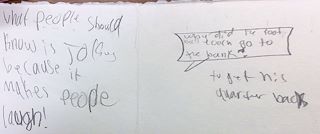 what people should
know is Jokes
because it
makes people
laugh!
why did the foot
ball coach go to
the bank?
to get his
quarter back